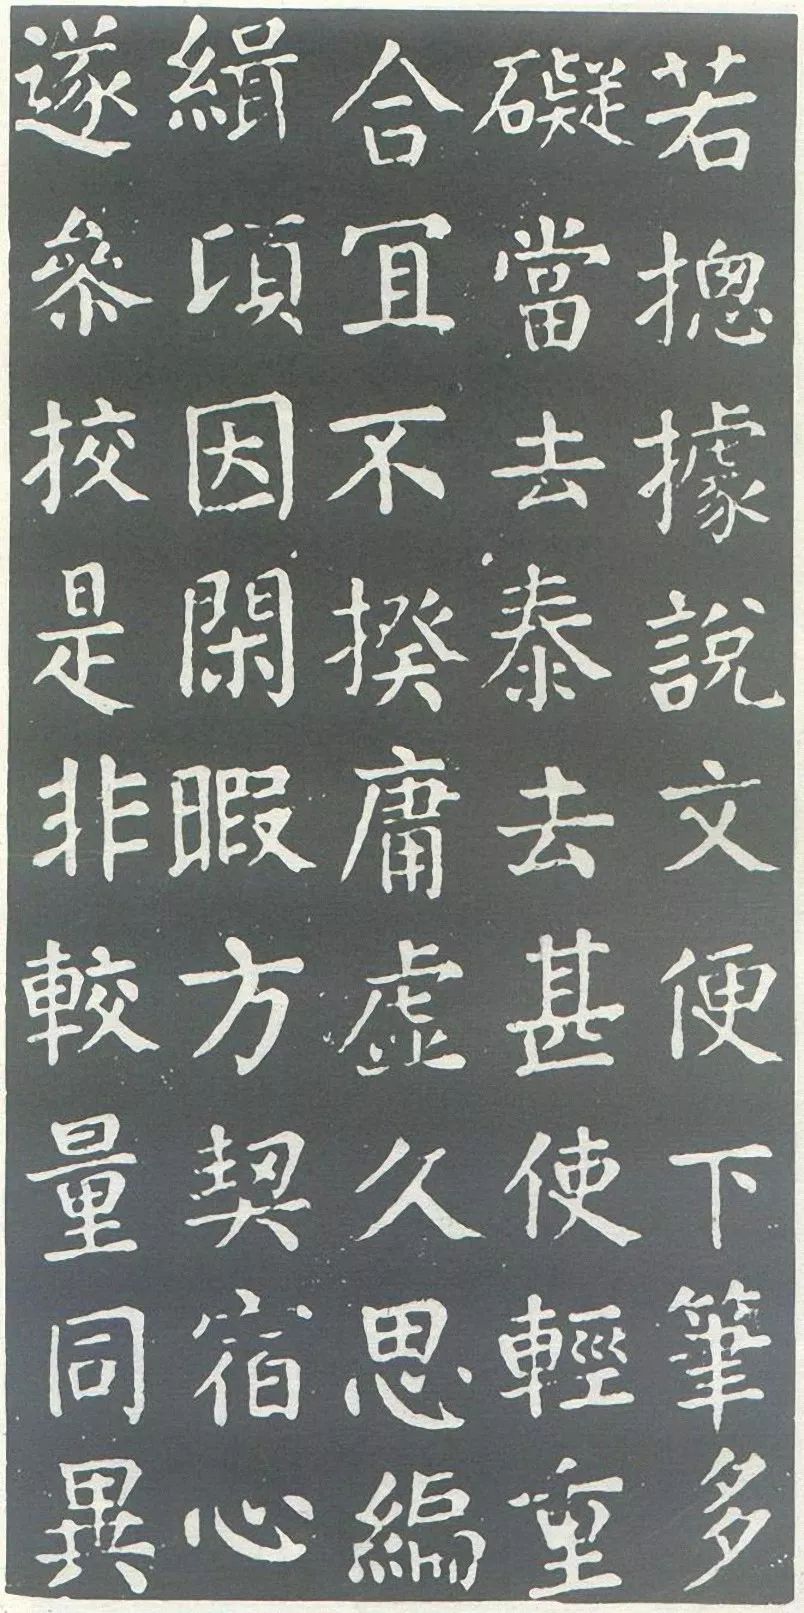 若揔據說文便下筆多
礙當去泰去甚使輕重
合冝不揆庸虛久思編
緝頃因閑暇方契宿心
遂叅挍是非較量同異